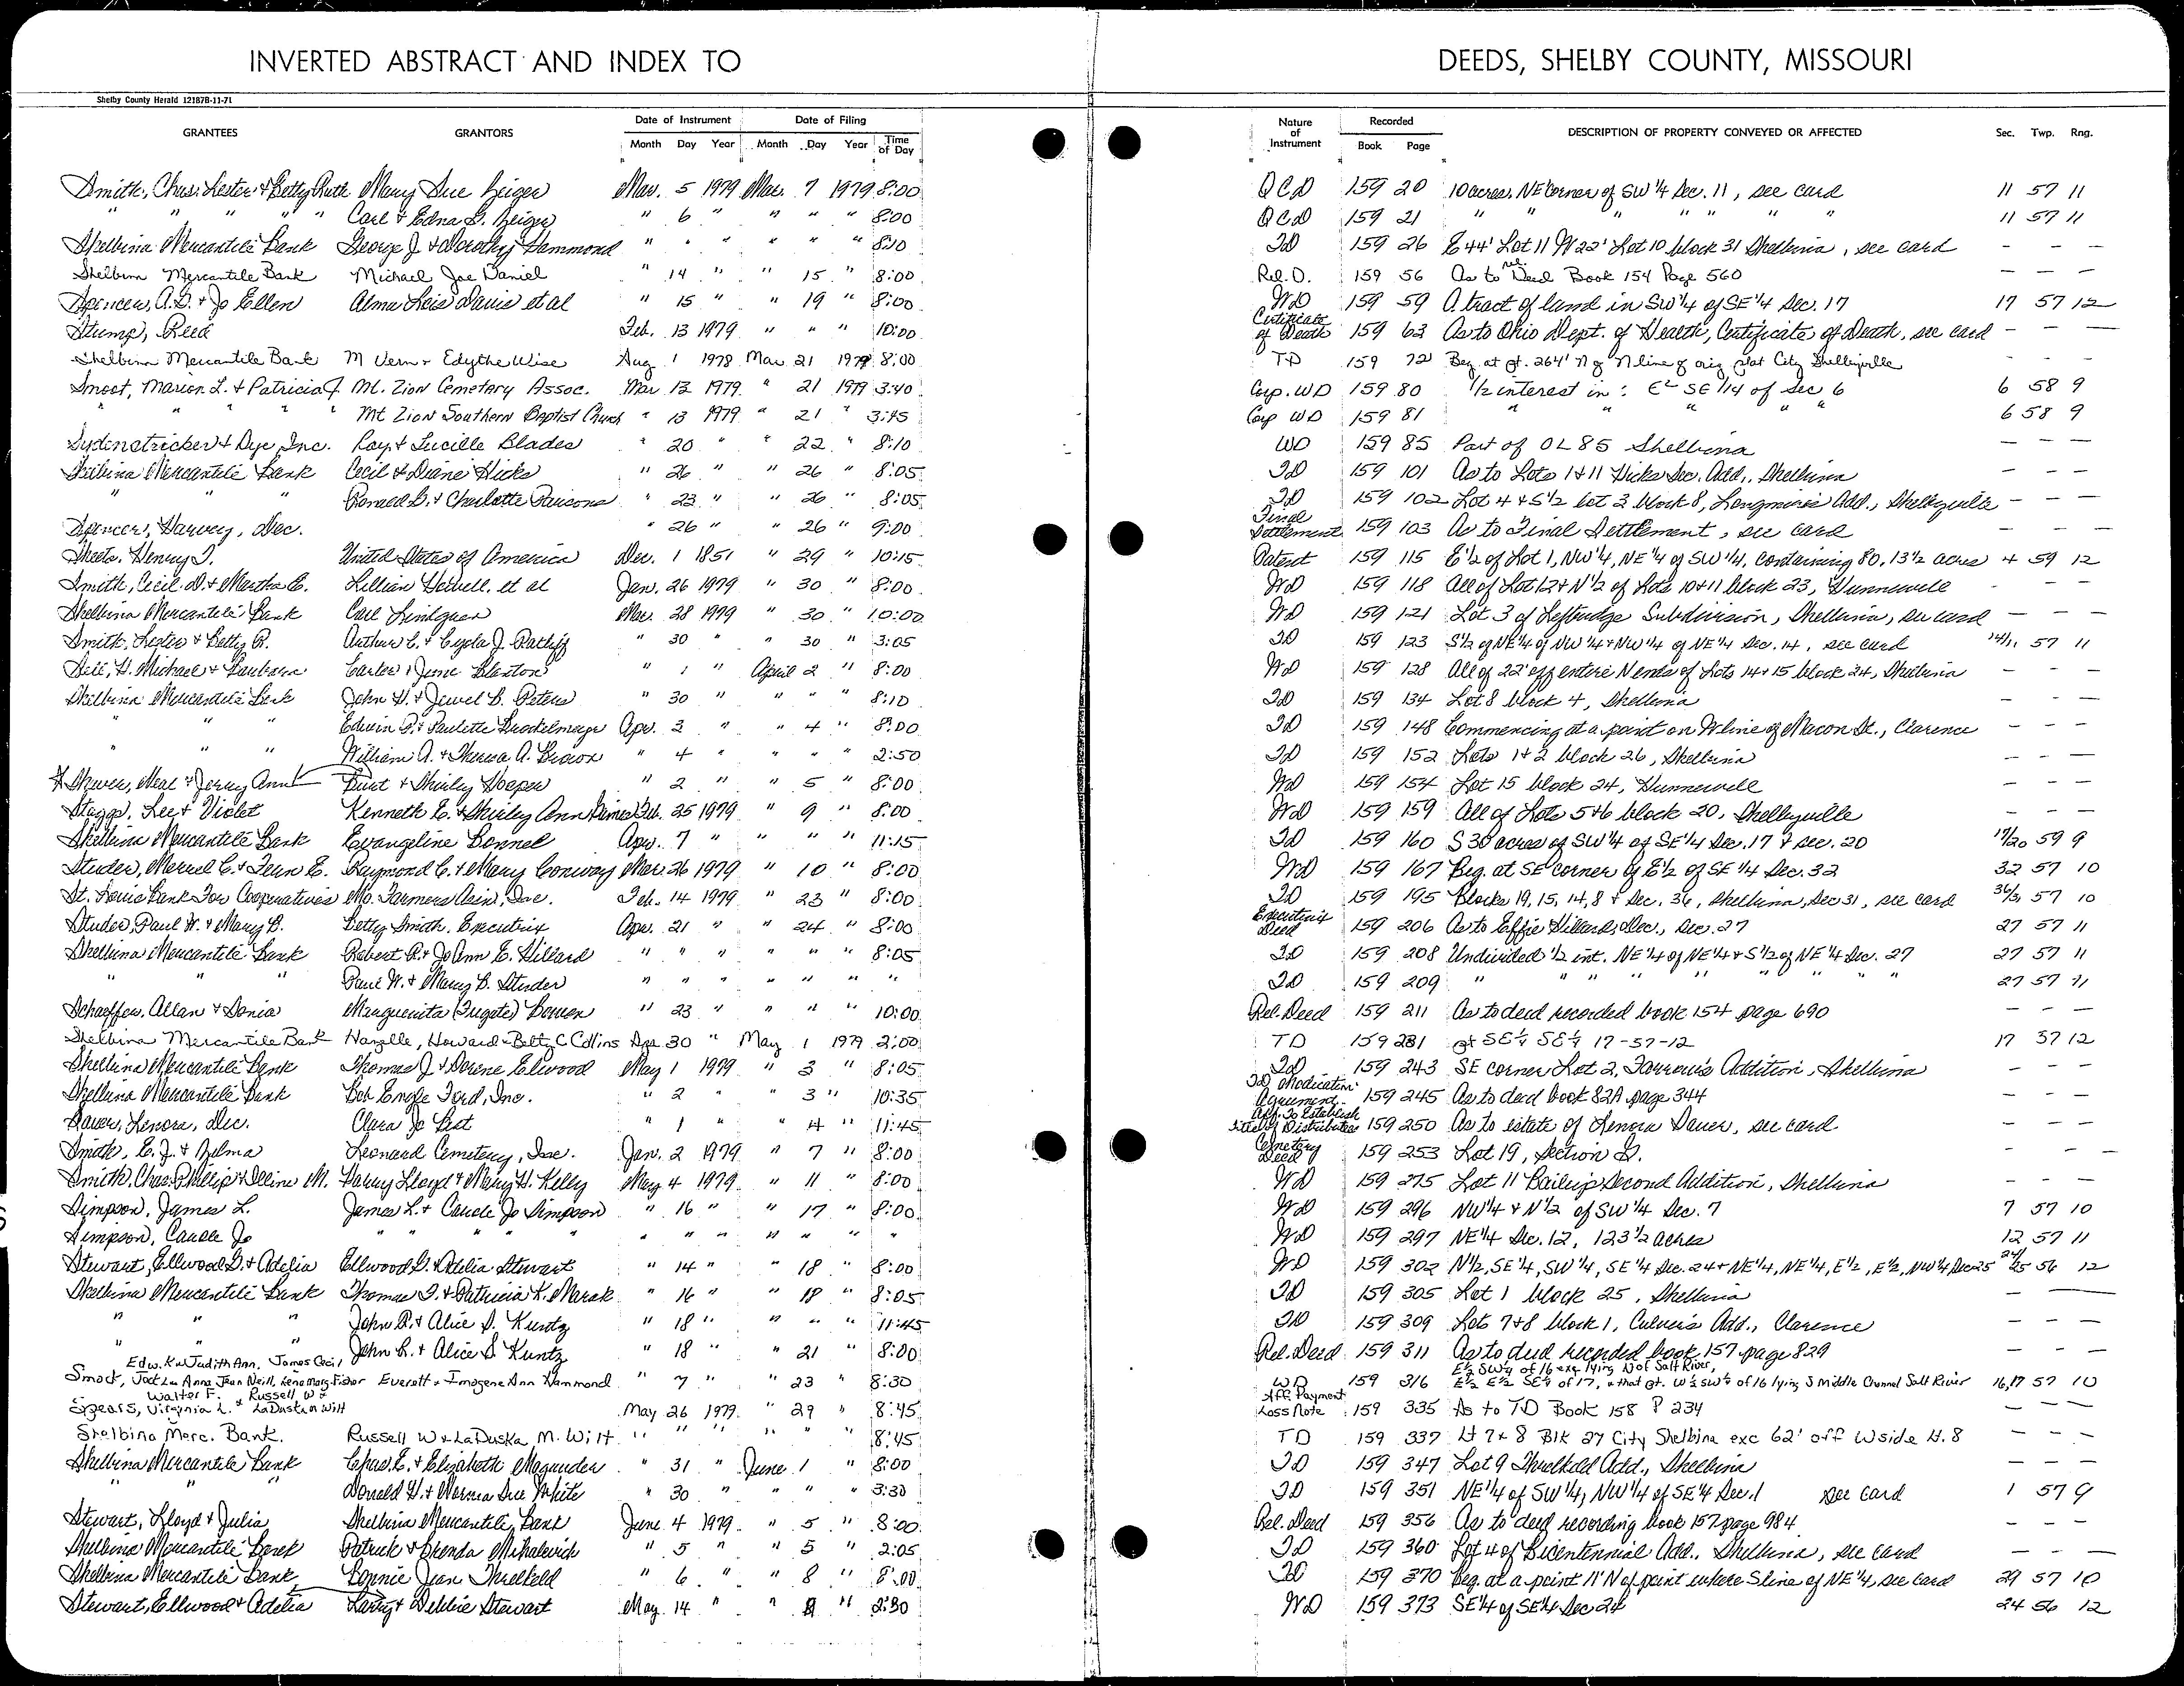 INVERTED ABSTRACT AND INDEX TO DEEDS, SHELBY COUNTY, MISSOURI
Shelby County Herald 12187B-11-71
GRANTEES GRANTORS Date of Instrument Month Day Year Date of Filing Month Day Year Time of Day Nature of Instrument Recorded Book Page DESCRIPTION OF PROPERTY CONVEYED OR AFFECTED Sec. Twp. Rng.
Smith, Chas. Lester & Betty Ruth Mary Sue Zeiger Mar. 5 1979 Mar. 7 1979 8:00 QCD 159 20 10 acres, NE corner of SW 1/4 Sec. 11, see card 11 57 11
" " " " " Carl & Edna G. Zeiger " 6 " " " " 8:00 QCD 159 21 " " " " " " 11 57 11
Shelbina Mercantile Bank George J. & Dorothy Hammond " " " " " " 8:10 TD 159 26 E 44' Lot 11 W 22' Lot 10 block 31 Shelbina, see card - - -
Shelbina Mercantile Bank Michael Joe Daniel " 14 " " 15 " 8:00 Rel. D. 159 56 As to rel. Deed Book 154 Page 560 - - -
Spencer, A.D. & Jo Ellen Alma Lois Davis et al " 15 " " 19 " 8:00 WD 159 59 A tract of land in SW 1/4 of SE 1/4 Sec. 17 17 57 12
Stump, Reed Feb. 13 1979 " " " 10:00 Certificate of Death 159 63 As to Ohio Dept. of Health, Certificate of Death, see card - - -
Shelbina Mercantile Bank M Vern & Edythe Wise Aug 1 1978 Mar 21 1979 8:00 TD 159 72 Beg. at pt. 264' N of N line of orig plat City Shelbyville - - -
Smoot, Marion L. & Patricia J. Mt. Zion Cemetary Assoc. Mar 13 1979 " 21 1979 3:40 Corp. WD 159 80 1/2 interest in: E½ SE 1/4 of Sec 6 6 58 9
" " " " Mt Zion Southern Baptist Church " 13 1979 " 21 " 3:45 Corp WD 159 81 " " " " 6 58 9
Sydenstricker & Dye, Inc. Roy & Lucille Blades " 20 " " 22 " 8:10 WD 159 85 Part of OL 85 Shelbina - - -
Shelbina Mercantile Bank Cecil & Diane Hicks " 26 " " 26 " 8:05 TD 159 101 As to Lots 1 & 11 Hicks Sec. Add., Shelbina - - -
" " " Ronald G. & Charlotte Parsons " 23 " " 26 " 8:05 TD 159 102 Lot 4 & S 1/2 lot 3 block 8, Longmires Add., Shelbyville - - -
Spencer, Harvey, Dec. " 26 " " 26 " 9:00 Final Settlement 159 103 As to Final Settlement, see card - - -
Sheets, Henry T. United States of America Dec. 1 1851 " 29 " 10:15 Patent 159 115 E 1/2 of Lot 1, NW 1/4, NE 1/4 of SW 1/4, containing 80, 13 1/2 acres 4 59 12
Smith, Cecil D. & Martha E. Lillian Howell, et al Jan. 26 1979 " 30 " 8:00 WD 159 118 All of Lot 12 & N 1/2 of Lots 10 & 11 block 23, Hunnewell - -
Shelbina Mercantile Bank Carl Lindgren Mar. 28 1979 " 30 " 10:00 WD 159 121 Lot 3 of Leftridge Subdivision, Shelbina, see card - - -
Smith, Lester & Betty R. Arthur C. & Cyola J. Ratliff " 30 " " 30 " 3:05 TD 159 123 S 1/2 of NE 1/4 of NW 1/4 & NW 1/4 of NE 1/4 Sec. 14, see card 14/11 57 11
H. Michael & Barbara Carlos & June Blanton " 1 " April 2 " 8:00 WD 159 128 All of 22' off entire N ends of Lots 14 & 15 block 24, Shelbina - - -
Shelbina Mercantile Bank John H. & Jewel B. Peters " 30 " " " " 8:10 TD 159 134 Lot 8 block 4, Shelbina - - -
" " " Edwin P. & Paulette Brockelmeyer Apr. 3 " " 4 " 8:00 TD 159 148 Commencing at a point on W line of Macon St., Clarence - - -
" " " William A. & Theresa A. Brown " 4 " " " " 2:50 TD 159 152 Lots 1 & 2 block 26, Shelbina - - -
Neal & Jerry Ann & Shirley Hooper " 2 " " 5 " 8:00 WD 159 154 Lot 15 block 24, Hunnewell - - -
Staggs, Lee & Violet Kenneth E. & Shirley Ann Feb. 25 1979 " 9 " 8:00 WD 159 159 All of Lots 5 & 6 block 20, Shelbyville - - -
Shelbina Mercantile Bank Evangeline Bonnel Apr. 7 " " " " 11:15 TD 159 160 S 30 acres of SW 1/4 of SE 1/4 Sec. 17 & sec. 20 17/20 59 9
Studer, Merrel C. & Fern E. Raymond C. & Mary Conway Mar. 26 1979 " 10 " 8:00 WD 159 167 Beg. at SE corner of E 1/2 of SE 1/4 Sec. 32 32 57 10
St. Louis Bank For Cooperatives Mo. Farmers Assn., Inc. Feb. 14 1979 " 23 " 8:00 TD 159 195 Blocks 19, 15, 14, 8 & Sec. 36, Shelbina, Sec 31, see card 36/31 57 10
Studer, Paul W. & Mary B. Betty Smith, Executrix Apr. 21 " " 24 " 8:00 Executrix Deed 159 206 As to Effie Hillard, Dec., Sec. 27 27 57 11
Shelbina Mercantile Bank Robert R. & JoAnn E. Hillard " " " " " " 8:05 TD 159 208 Undivided 1/2 int. NE 1/4 of NE 1/4 & S 1/2 of NE 1/4 Sec. 27 27 57 11
" " " Paul W. & Mary B. Studer " " " " " " " TD 159 209 " " " " " " " 27 57 11
Schaeffer, Allan & Sonia Marguerita (Fugate) Bowen " 23 " " " " 10:00 Rel. Deed 159 211 As to deed recorded book 154 page 690 - - -
Shelbina Mercantile Bank Hazelle, Howard & Betty C Collins Apr 30 " May 1 1979 2:00 TD 159 231 pt SE¼ SE¼ 17-57-12 17 57 12
Shelbina Mercantile Bank Thomas J. & Dorene Elwood May 1 1979 " 3 " 8:05 TD 159 243 SE corner Lot 2, Farrow's Addition, Shelbina - - -
Shelbina Mercantile Bank Bob Engle Ford, Inc. " 2 " " 3 " 10:35 TD Modication Agreement 159 245 As to deed book 82A page 344 - - -
Sauer, Lenora, Dec. Clara Jo Last " 1 " " 4 " 11:45 Aff. To Establish Title of Distributees 159 250 As to estate of Lenora Sauer, see card - - -
Smith, E. J. & Zelma Leonard Cemetery, Inc. Jan. 2 1979 " 7 " 8:00 Cemetery Deed 159 253 Lot 19, Section D. - - -
Smith, Chas. Phillip & Illine M. Harry Lloyd & Mary H. Kelly May 4 1979 " 11 " 8:00 WD 159 275 Lot 11 Bailey's Second Addition, Shelbina - - -
Simpson, James L. James L. & Carole Jo Simpson " 16 " " 17 " 8:00 WD 159 296 NW 1/4 & N 1/2 of SW 1/4 Sec. 7 7 57 10
Simpson, Carole Jo " " " " " " " " " " WD 159 297 NE 1/4 Sec. 12, 123 1/2 acres 12 57 11
Stewart, Ellwood G. & Adelia Ellwood G. & Adelia Stewart " 14 " " 18 " 8:00 WD 159 302 N 1/2, SE 1/4, SW 1/4, SE 1/4 Sec. 24 & NE 1/4, NE 1/4, E 1/2, E 1/2, NW 1/4 Sec 25 24/25 56 12
Shelbina Mercantile Bank Thomas D. & Patricia K. Marak " 16 " " 18 " 8:05 TD 159 305 Lot 1 block 25, Shelbina - -
" " " John R. & Alice S. Kuntz " 18 " " " " 11:45 TD 159 309 Lots 7 & 8 block 1, Culver's Add., Clarence - - -
" " " John R. & Alice S Kuntz " 18 " " 21 " 8:00 Rel. Deed 159 311 As to deed recorded book 157 page 829 - - -
Edw. K & Judith Ann, James Cecil E½ SW¼ of 16 exc lying N of Salt River,
Smock, Jack Lee Anna Jean Neill, Lena Mary Fisher Everett & Imogene Ann Hammond " 7 " " 23 " 8:30 WD 159 316 E½ E½ SE¼ of 17, & that pt. W½ SW¼ of 16 lying S Middle Channel Salt River 16,17 57 10
Walter F. & Russell W &
Spears, Virginia L. & LaDuska M Wilt May 26 1979 " 29 " 8:45 Aff. Payment Loss Note 159 335 As to TD Book 158 P 234 - - -
Shelbina Merc. Bank. Russell W & LaDuska M. Wilt " " " " " " 8:45 TD 159 337 Lt 7 & 8 Blk 27 City Shelbina exc 62' off W side Lt. 8 - - -
Shelbina Mercantile Bank Chas. E. & Elizabeth Magruder " 31 " June 1 " 8:00 TD 159 347 Lot 9 Threlkeld Add., Shelbina - - -
" " " Donald H. & Norma Sue White " 30 " " " " 3:30 TD 159 351 NE 1/4 of SW 1/4, NW 1/4 of SE 1/4 Sec. 1 see card 1 57 9
Stewart, Lloyd & Julia Shelbina Mercantile Bank June 4 1979 " 5 " 8:00 Rel. Deed 159 356 As to deed recording book 157 page 984 - - -
Shelbina Mercantile Bank Patrick & Brenda Mihalevich " 5 " " 5 " 2:05 TD 159 360 Lot 4 of Bicentennial Add., Shelbina, see card - - -
Shelbina Mercantile Bank Bonnie Jean Threlkeld " 6 " " 8 " 8:00 TD 159 370 Beg. at a point 11' N of point where S line of NE 1/4, see card 29 57 10
Stewart, Ellwood & Adelia Larry & Debbie Stewart May 14 " " 8 " 2:30 WD 159 373 SE 1/4 of SE 1/4 Sec 24 24 56 12